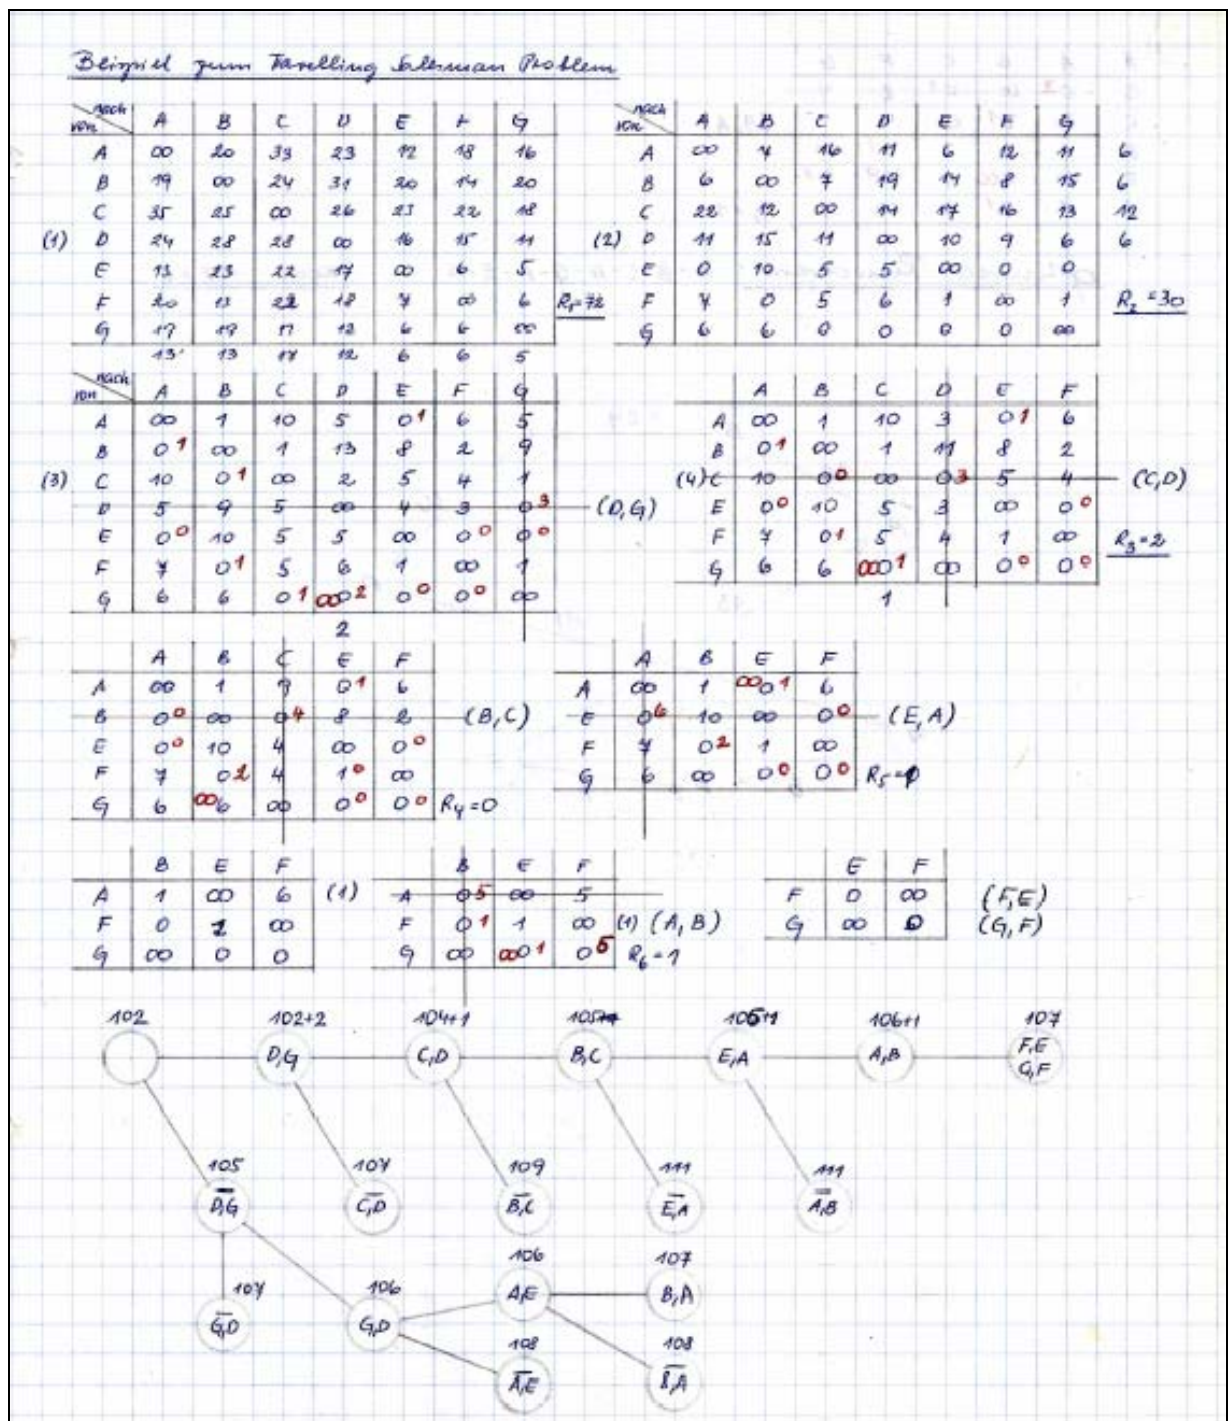 Beispiel zum Tavelling Salesman Problem
von nach A B C D E F G
A ∞ 20 33 23 12 18 16
B 19 ∞ 24 31 20 14 20
C 35 25 ∞ 26 23 22 18
(1) D 24 28 28 ∞ 16 15 11
E 13 23 22 17 ∞ 6 5
F 20 13 22 18 7 ∞ 6 R₁=72
G 17 19 17 12 6 6 ∞
13 13 17 12 6 6 5
von nach A B C D E F G
A ∞ 7 16 11 6 12 11 6
B 6 ∞ 7 19 14 8 15 6
C 22 12 ∞ 14 17 16 13 12
(2) D 11 15 11 ∞ 10 9 6 6
E 0 10 5 5 ∞ 0 0
F 7 0 5 6 1 ∞ 1 R₂=30
G 6 6 0 0 0 0 ∞
von nach A B C D E F G
A ∞ 1 10 5 0 1 6 5
B 0 1 ∞ 1 13 8 2 9
(3) C 10 0 1 ∞ 2 5 4 1
D 5 9 5 ∞ 4 3 0 3 (D,G)
E 0 0 10 5 5 ∞ 0 0 0 0
F 7 0 1 5 6 1 ∞ 1
G 6 6 0 1 ∞ 0 2 0 0 0 0 ∞
2
A B C D E F
A ∞ 1 10 3 0 1 6
B 0 1 ∞ 1 11 8 2
(4) C 10 0 0 ∞ 0 3 5 4 (C,D)
E 0 0 10 5 3 ∞ 0 0
F 7 0 1 5 4 1 ∞ R₃=2
G 6 6 ∞ 0 1 ∞ 0 0 0 0
1
A B C E F
A ∞ 1 9 0 1 6
B 0 0 ∞ 0 4 8 2 (B,C)
E 0 0 10 4 ∞ 0 0
F 7 0 2 4 1 0 ∞
G 6 ∞ 6 ∞ 0 0 0 0 R₄=0
A B E F
A ∞ 1 ∞ 0 1 6
E 0 6 10 ∞ 0 0 (E,A)
F 7 0 2 1 ∞
G 6 ∞ 0 0 0 0 R₅=
B E F
A 1 ∞ 6 (1)
F 0 1 ∞
G ∞ 0 0
B E F
A 0 5 ∞ 5
F 0 1 1 ∞ (1) (A,B)
G ∞ ∞ 0 1 0 5 R₆=1
E F
F 0 ∞ (F,E)
G ∞ 0 (G,F)
102 102+2 104+1 105 105+1 106+1 107
D,G C,D B,C E,A A,B F,E
G,F
105 107 109 111 111
D̅,G̅ C̅,D̅ B̅,C̅ E̅,A̅ A̅,B̅
106 107
107 106 A,E B,A
G̅,D̅ G,D
108 108
A̅,E̅ B̅,A̅